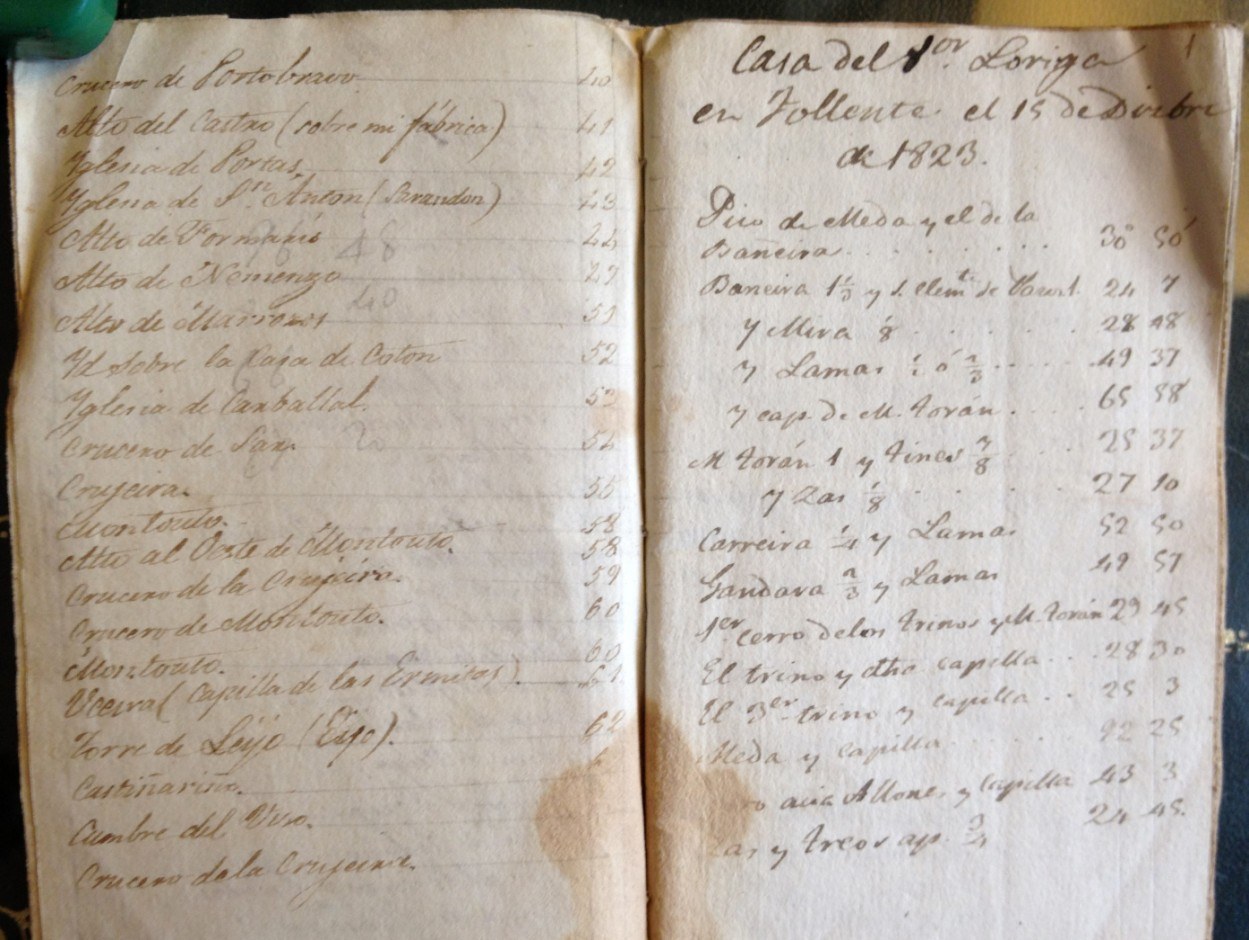 Crucero de Portobravo 40
Alto del Castro (sobre mi fábrica) 41
Yglesia de Portas 42
Yglesia de Sn. Anton (Sarandon) 43
Alto de Formarís 44
48
Alto de Nemenzo
40
Alto de Marrozos 51
Yd sobre la Casa de Coton 52
Yglesia de Carballal. 53
Crucero de 54
20
Crujeira. 55
Montouto. 58
Alto al Oeste de Montouto. 58
Crucero de la Crujeira. 59
Crucero de Montouto. 60
Montouto. 60
(Capilla de las Ermitas). 61
Torre de Leijo (Eijo). 62
Castiñariño.
Cumbre del Viso.
Crucero de la Crujeira.
1
Casa del Sor. Loriga
en Tollente el 15 de Dicbre
de 1823.
Pico de Meda y el de la
Bañeira 30° 50'
Baneira 1/3 y S. Clemte. de 24 7
y Meira 1/8 28 48
y Lamas 49 37
y cap. de M. Torán 65 58
M Torán 1 y Tines 7/8 25 37
y Zas 1/8 27 10
Carreira 1/4 y Lamas 52 50
Gandara 2/3 y Lamas 49 57
1er. cerro de los trinos y M. Torán 29 45
El trino y dha capilla 28 30
El 3er. trino y capilla 25 3
Meda y capilla 92 25
acia Allones y Capilla 43 3
y Treos ap. 3/4 24 45.